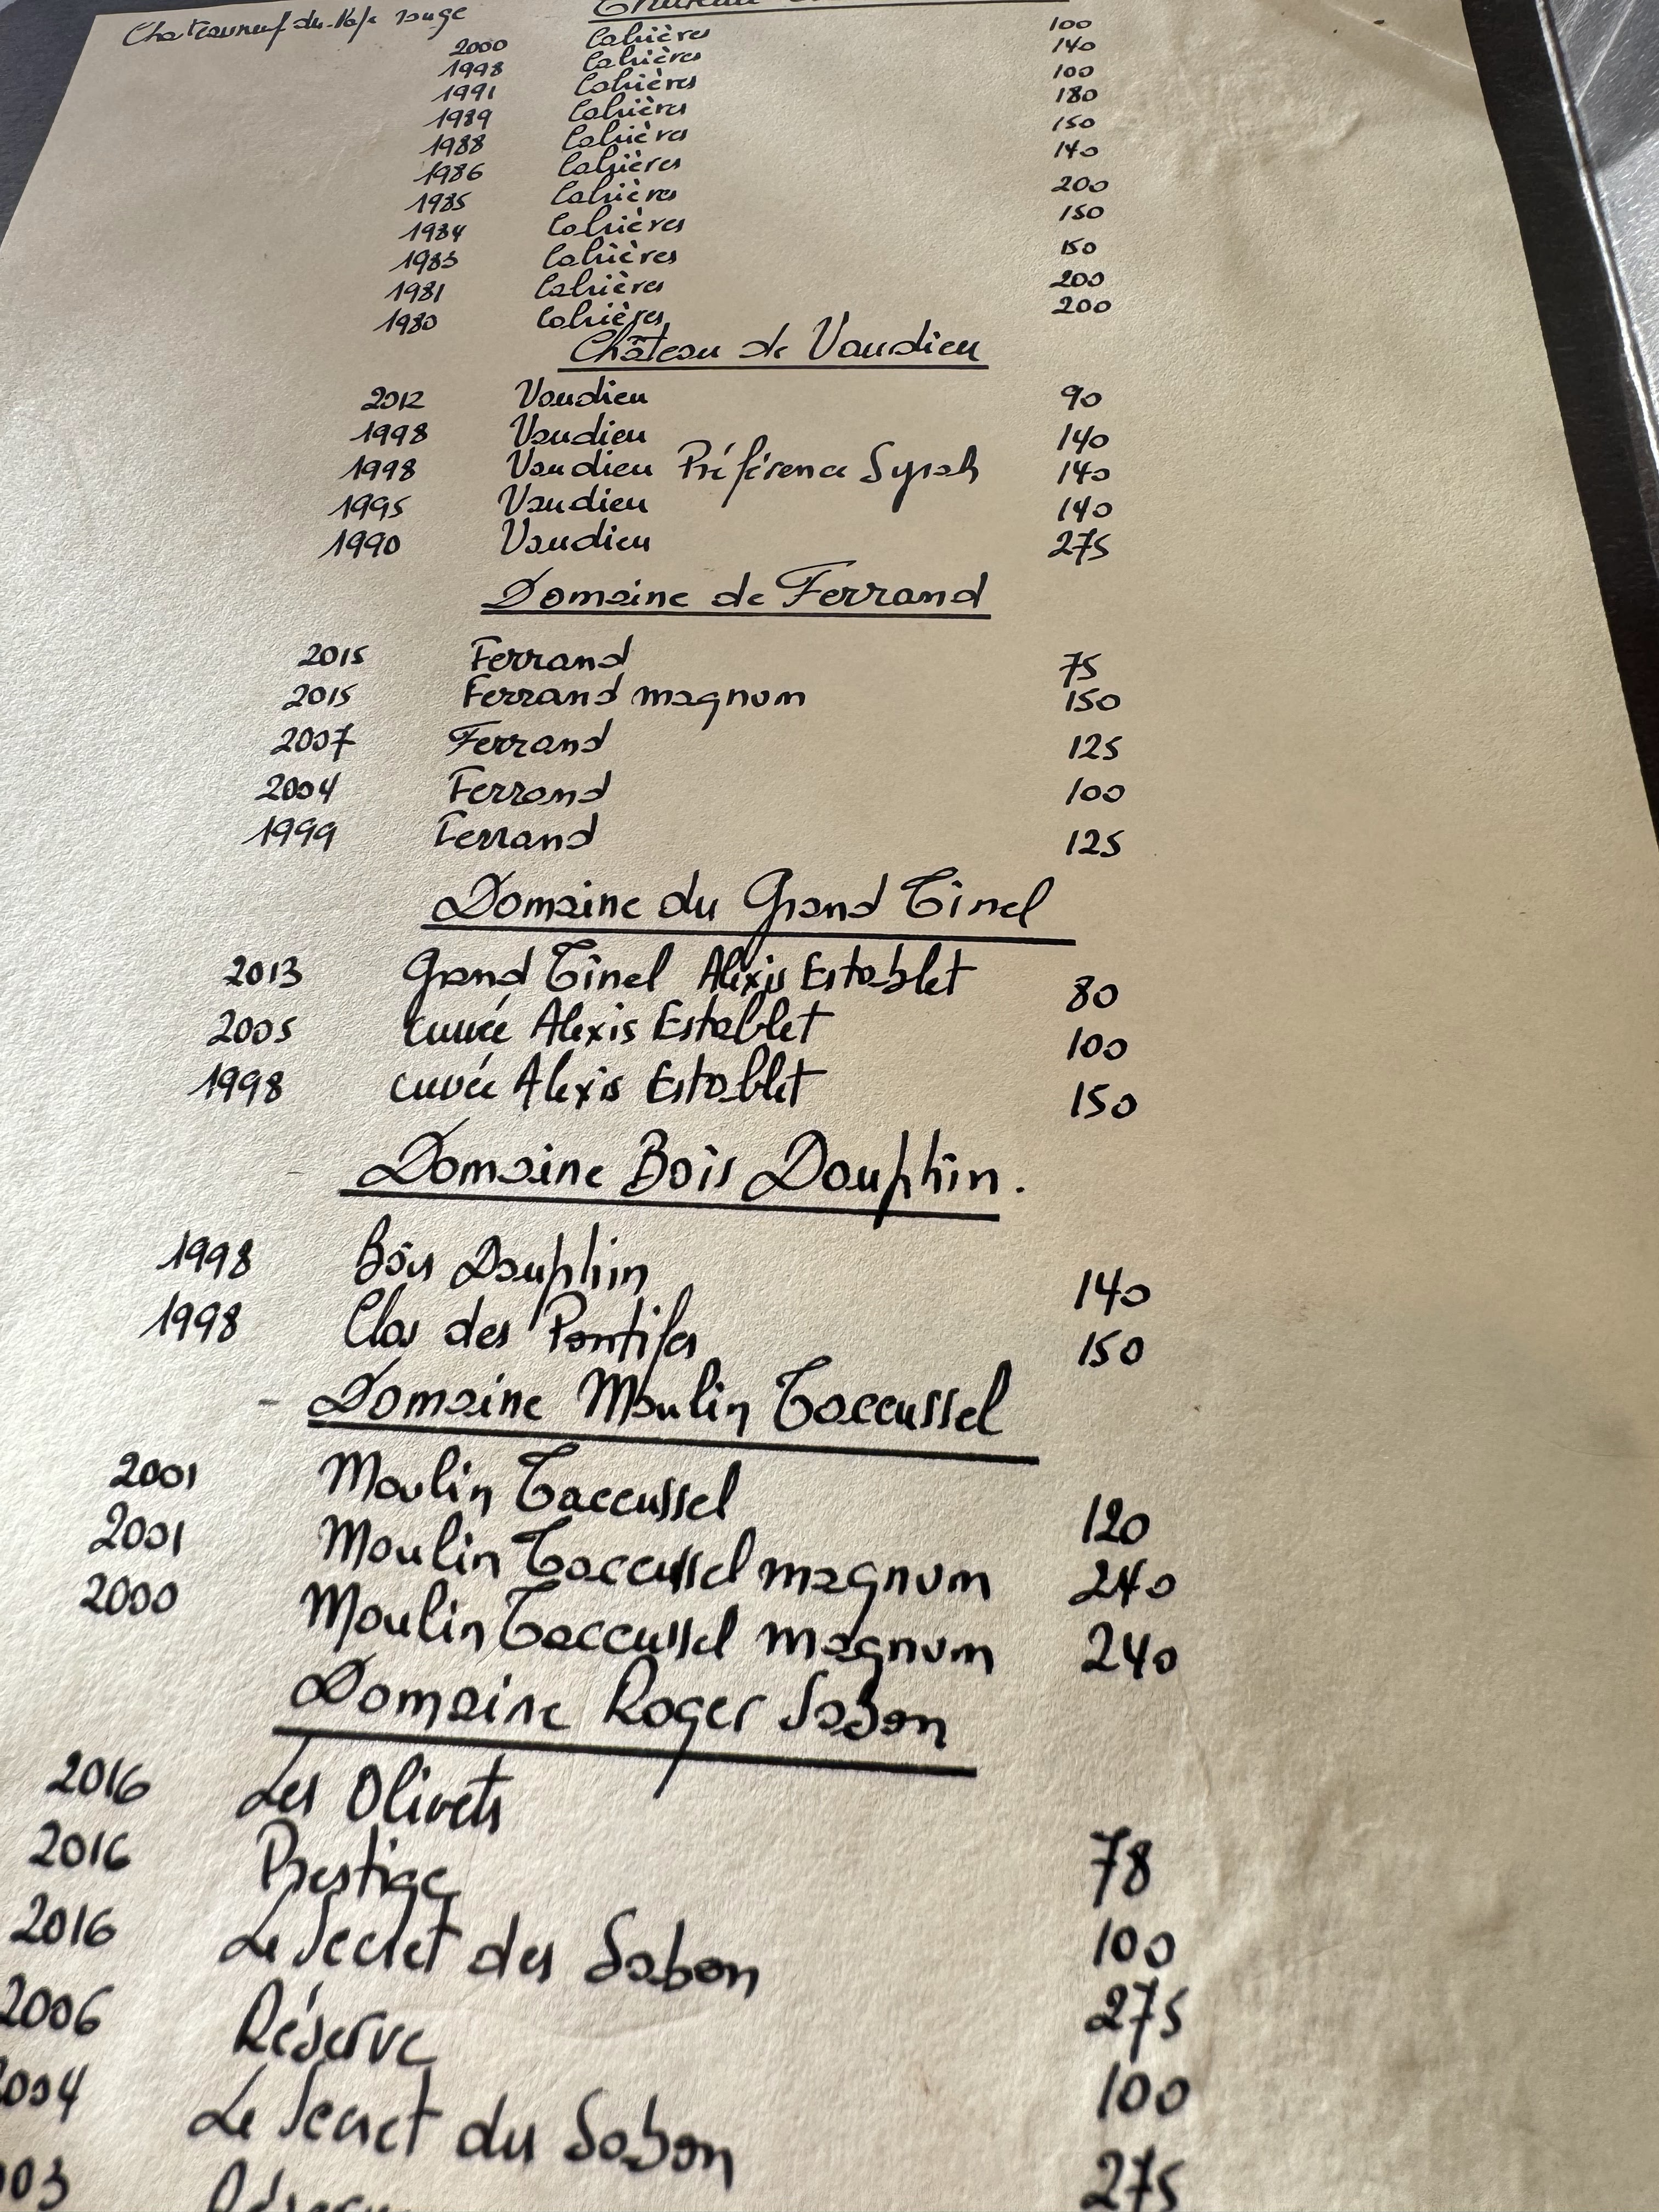 Chateauneuf-du-Pape rouge
2000 Cabrières 100
1998 Cabrières 140
1991 Cabrières 100
1989 Cabrières 180
1988 Cabrières 150
1986 Cabrières 140
1985 Cabrières 200
1984 Cabrières 150
1983 Cabrières 150
1981 Cabrières 200
1980 Cabrières 200
Château de Vaudieu
2012 Vaudieu 90
1998 Vaudieu 140
1998 Vaudieu Préférence Syrah 140
1995 Vaudieu 140
1990 Vaudieu 275
Domaine de Ferrand
2015 Ferrand 75
2015 Ferrand magnum 150
2007 Ferrand 125
2004 Ferrand 100
1999 Ferrand 125
Domaine du Grand Tinel
2013 Grand Tinel Alexis Establet 80
2005 cuvée Alexis Establet 100
1998 cuvée Alexis Establet 150
Domaine Bois Dauphin.
1998 Bois Dauphin 140
1998 Clos des Pontifes 150
Domaine Moulin Taccussel
2001 Moulin Taccussel 120
2001 Moulin Taccussel magnum 240
2000 Moulin Taccussel magnum 240
Domaine Roger Sabon
2016 Les Olivets 78
2016 Prestige 100
2016 Le Secret des Sabon 275
2006 Réserve 100
2004 Le Secret des Sabon 275
03